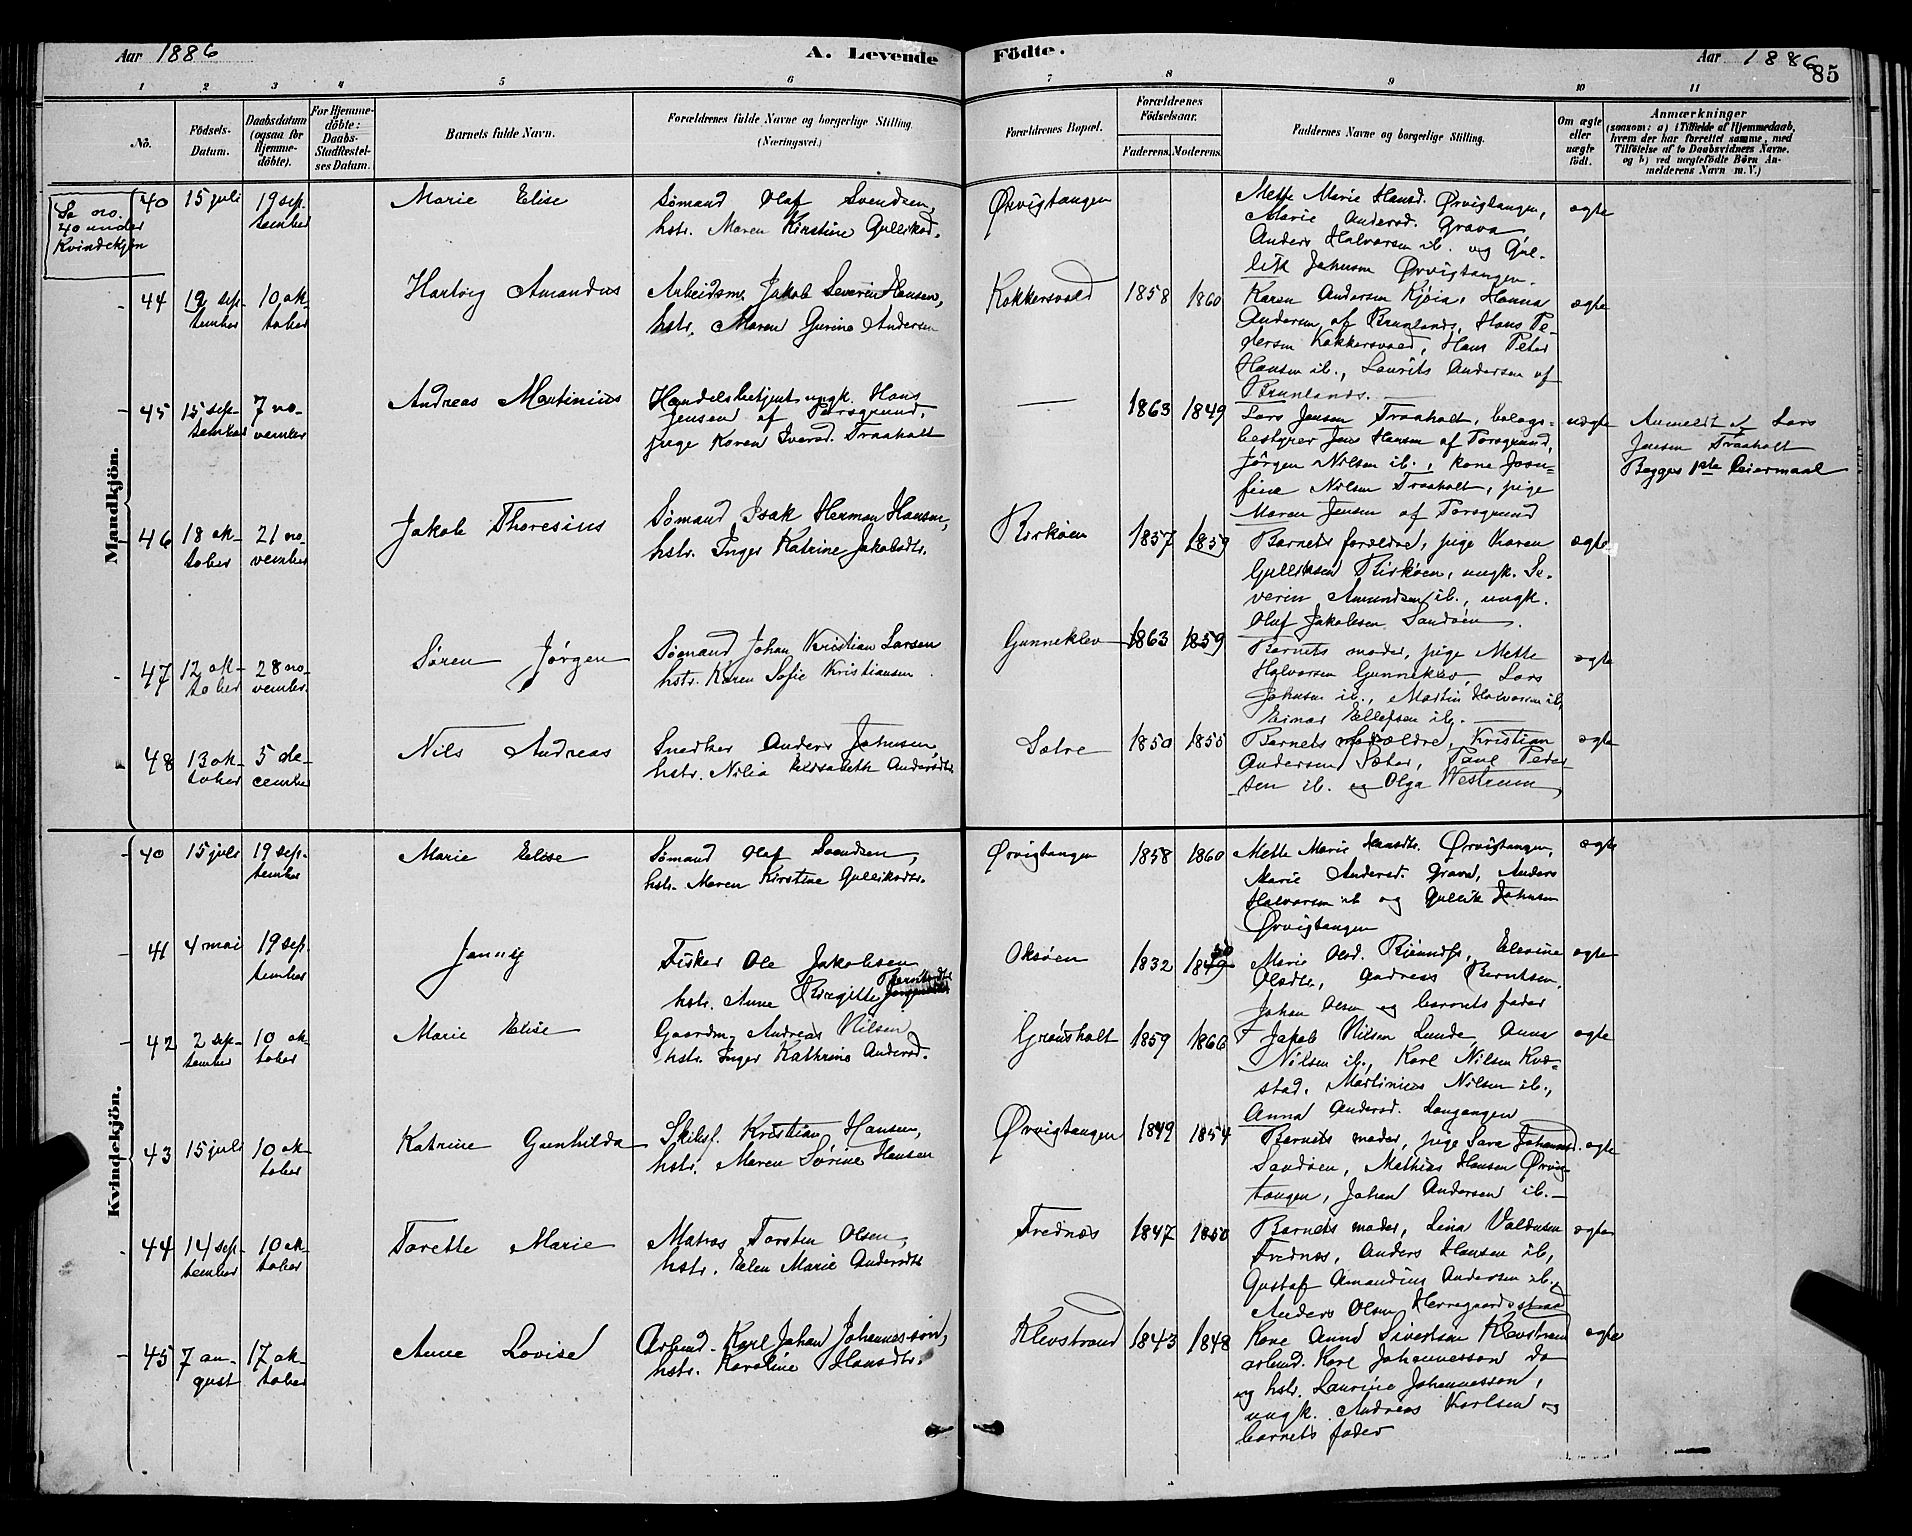 Aar 1886
A. Levende
Födte.
Aar 1886
85
1 2 3 4 5 6 7 8 9 10 11
No.
Födsels-Datum.
Daabsdatum (ogsaa for Hjemme-döbte).
For Hjemme-döbte: Daabs-Stadfæstel-ses Datum.
Barnets fulde Navn.
Forældrenes fulde Navne og borgerlige Stilling. (Næringsvei.)
Forældrenes Bopæl.
Forældrenes Födselsaar.
Faderens. Moderens.
Faddernes Navne og borgerlige Stilling.
Om ægte eller uægte födt.
Anmærkninger
(saasom: a) i Tilfælde af Hjemmedaab, hvem der har forrettet samme, med Tilföielse af to Daabsvidners Navne, og b) ved uægtefödte Börn An-melderens Navn m. V.)
Mandkjön.
Se no.
40 under
Kvindekjøn
40 15 juli 19 sep-
tember
Marie Elise
Sømand Olaf Svendsen,
hstr. Maren Kirstine Gulliksd.
Ørvigtangen
Mette Marie Hansd. Ørvigtangen,
Marie Andersd. Grava,
Anders Halvorsen ib. og Gul-
lik Johnsen Ørvigtangen.
ægte
44 19 sep- 10 ok-
tember tober
Hartvig Amandus
Arbeidsm. Jakob Severin Hansen,
hstr. Maren Gurine Andersen
Kokkersvold 1858 1860
Karen Andersen Kjøia, Hanna
Andersen af Brunlands, Hans Pe-
dersen Kokkersvold, Hans Peter
Hansen ib., Laurits Andersen af
Brunlands.
ægte
45 15 sep- 7 no-
tember vember
Andreas Martinius
Handelsbetjent ungk. Hans
Jensen af Porsgrund,
pige Karen Iversd. Traaholt
— 1863 1849
Lars Jensen Traaholt, bolags-
bestyrer Jens Hansen af Porsgrund,
Jörgen Nilsen ib., kone Jose-
fine Nilsen Traaholt, pige
Maren Jensen af Porsgrund
uægte
Anmeldt af Lars
Jensen Traaholt
Begges 1ste Leiermaal
46 18 ok- 21 no-
tober vember
Jakob Thoresius
Sømand Isak Herman Hansen,
hstr. Inger Katrine Jakobsdtr.
Birköen 1857 1859
Barnets forældre, pige Karen
Gulliksen Birköen, ungk. Se-
verin Amundsen ib., ungk.
Oluf Jakobsen Sandøen.
ægte
47 12 ok- 28 no-
tober vember
Søren Jørgen
Sømand Johan Kristian Larsen
hstr. Karen Sofie Kristiansen
Gunneklev 1863 1859
Barnets moder, pige Mette
Halvorsen Gunneklev, Lars
Johnsen ib., Martin Halvorsen ib,
Einar Ellefsen ib.
ægte
48 13 ok- 5 de-
tober cember
Nils Andreas
Snedker Anders Johnsen,
hstr. Nilia Elisabeth Andersdtr
Sætre 1850 1855
Barnets forældre, Kristian
Andersen Sæter, Paul Peder-
sen ib. og Olga Westrum,
ægte
Kvindekjön.
40 15 juli 19 sep-
tember
Marie Elise
Sømand Olaf Svendsen,
hstr. Maren Kirstine Gulliksdtr.
Ørvigtangen 1858 1860
Mette Marie Hansdtr. Ørvigtangen,
Marie Andersd. Grava, Anders
Halvorsen ib og Gullik Johnsen
Ørvigtangen
ægte
41 4 mai 19 sep-
tember
Janny
Fisker Ole Jakobsen
hstr. Anne Birgitte Berntsdtr
Oksøen 1832 1849 50
Marie Olsd. , Elevine
Olsdtr, Andreas Berntsen,
Johan Olsen og barnets fader
ægte
42 2 sep- 10 ok-
tember tober
Marie Elise
Gaardm. Andreas Nilsen
hstr. Inger Kathrine Andersd.
Grønsholt 1859 1866
Jakob Nilsen Lunde, Anna
Nilsen ib., Karl Nilsen Kvæ-
stad, Martinius Nilsen ib.,
Anna Andersd. Langangen
ægte
43 15 juli 10 ok-
tober
Katrine Gunhilda
Skibsf. Kristian Hansen,
hstr. Maren Sörine Hansen
Ørvigtangen 1849 1854
Barnets moder, pige Sara Johannesd.
Sandöen, Mathias Hansen Ørvig-
tangen, Johan Andersen ib.
ægte
44 14 sep- 10 ok-
tember tober
Torette Marie
Matros Torsten Olsen,
hstr. Elen Marie Andersdtr
Frednæs 1847 1850
Barnets moder, Lina Valdusen
Frednæs, Anders Hansen ib,
Gustaf Amandius Andersen ib.,
Anders Olsen Herregaardsstrad
ægte
45 7 au- 17 ok-
gust tober
Anne Lovise
Arbmd. Karl Johan Johannesson,
hstr. Karoline Hansdtr.
Klevstrand 1843 1848
Kone Anne Sivertsen Klevstrand
arbmd. Karl Johannesson do
og hstr. Laurine Johannesson,
ungk. Andreas Karlsen og
barnets fader
ægte